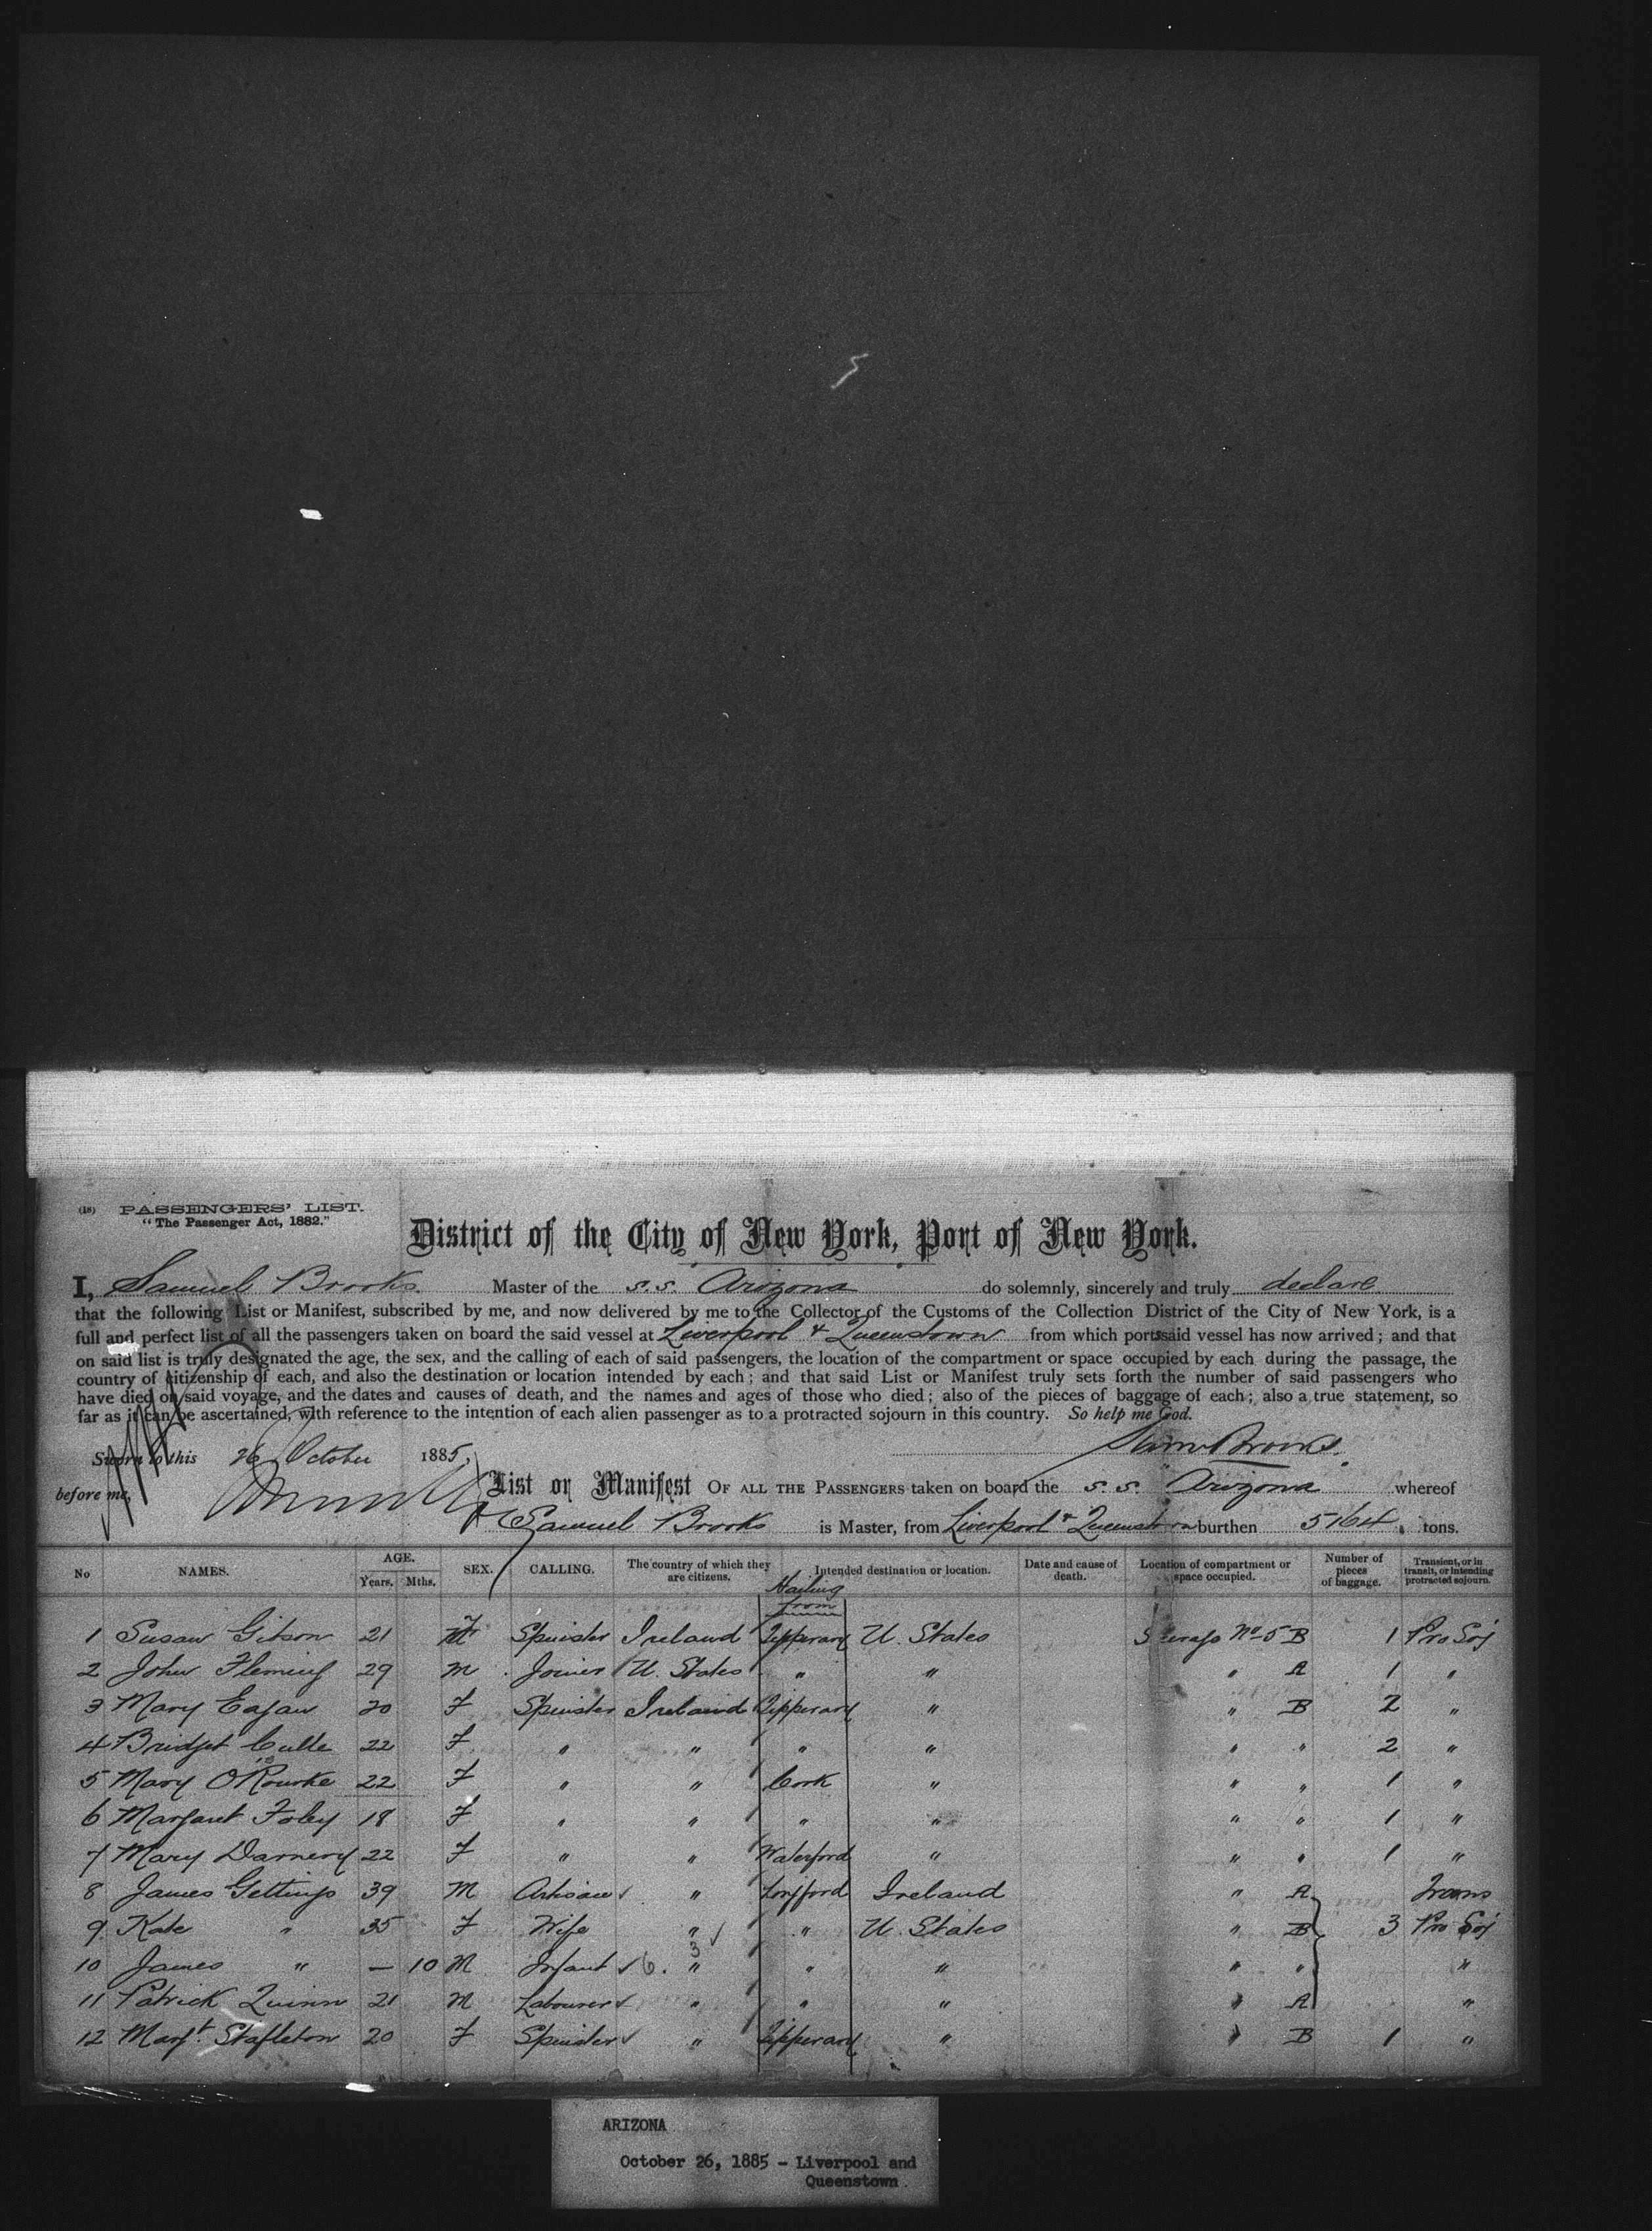 (18) PASSENGERS' LIST.
"The Passenger Act, 1882."
District of the City of New York, Port of New York.
I, Samuel Brooks Master of the s.s. Arizona do solemnly, sincerely and truly declare
that the following List or Manifest, subscribed by me, and now delivered by me to the Collector of the Customs of the Collection District of the City of New York, is a
full and perfect list of all the passengers taken on board the said vessel at Liverpool & Queenstown from which port said vessel has now arrived; and that
on said list is truly designated the age, the sex, and the calling of each of said passengers, the location of the compartment or space occupied by each during the passage, the
country of citizenship of each, and also the destination or location intended by each; and that said List or Manifest truly sets forth the number of said passengers who
have died on said voyage, and the dates and causes of death, and the names and ages of those who died; also of the pieces of baggage of each; also a true statement, so
far as it can be ascertained, with reference to the intention of each alien passenger as to a protracted sojourn in this country. So help me God.
Sworn to this 26 October 1885, Saml Brooks.
before me,
List or Manifest OF ALL THE PASSENGERS taken on board the s.s. Arizona whereof
Samuel Brooks is Master, from Liverpool & Queenstown burthen 5164 tons.
No NAMES. AGE. Years. Mths. SEX. CALLING. The country of which they are citizens. Intended destination or location. Date and cause of death. Location of compartment or space occupied. Number of pieces of baggage. Transient, or in transit, or intending protracted sojourn.
Hailing from
1 Susan Gibson 21 F Spinster Ireland Tipperary U. States Steerage No. 5 B 1 Pro Soj
2 John Fleming 29 M Joiner U. States " " " A 1 "
3 Mary Eagan 20 F Spinster Ireland Tipperary " " B 2 "
4 Bridget Culle 22 F " " " " " " 2 "
5 Mary O'Rourke 22 F " " Cork " " " 1 "
6 Margaret Foley 18 F " " " " " " 1 "
7 Mary Darnery 22 F " " Waterford " " " 1 "
8 James Gettings 39 M Artisan " Longford Ireland " A Trans
9 Kate " 35 F Wife " " U. States " B 3 Pro Soj
10 James " — 10 M Infant 6. 3 " " " " " "
11 Patrick Quinn 21 M Labourer " " " " A "
12 Margt. Stapleton 20 F Spinster " Tipperary " " B 1 "
ARIZONA
October 26, 1885 - Liverpool and
Queenstown.